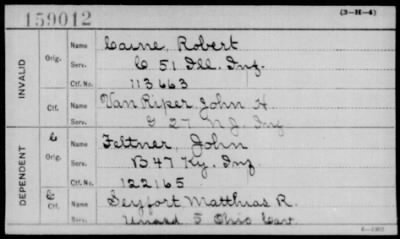 159012
(3-H-4)
INVALID
Orig.
Name Caine, Robert
Serv. C 51 Ill. Inf.
Ctf. No. 113663
Ctf.
Name Van Riper, John H.
Serv. G 27 N.J. Inf
DEPENDENT
C
Orig.
Name Feltner, John
Serv. B 47 Ky. Inf.
Ctf. No. 122165
C
Ctf.
Name Seyffort Matthias R.
Serv. 5 Ohio Cav.